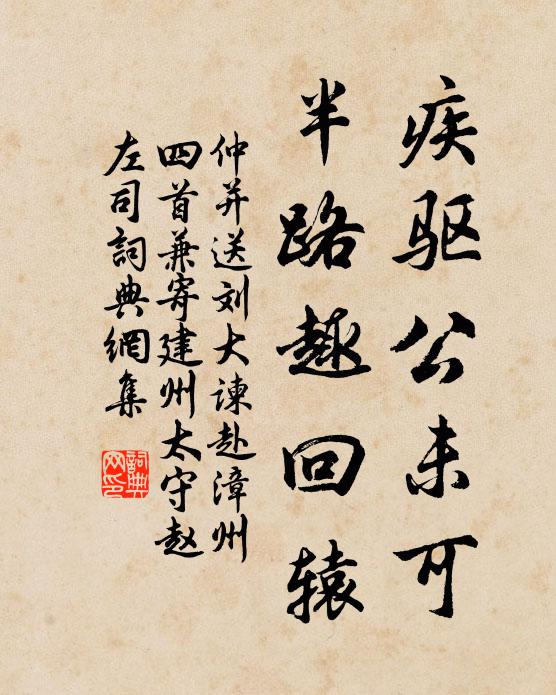 疾驱公未可
半路趣回辕
仲并送刘大谏赴漳州
四首兼寄建州太守赵
左司詞典網集
詞典網印